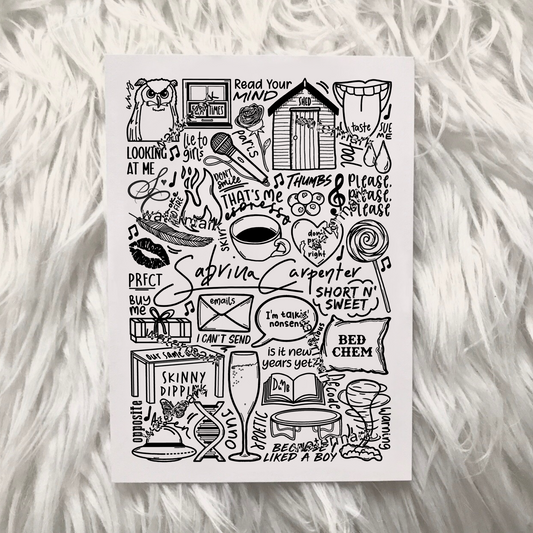 Read Your
MIND
SHED
taste
SUE
ME
LOOKING
AT ME
lie to
girls
PARIS
DON'T
Smile
THUMBS
Please,
Please,
Please
THAT'S ME
espresso
don't
right
PRFCT
Sabrina Carpenter
SHORT N'
SWEET
BUY
ME
emails
I CAN'T SEND
I'm talkin'
nonsense
is it new
years yet?
BED
CHEM
our same
SKINNY
DIPPING
opposite
JUNO
XPOETIC
DUMB
decode
BECAUSE I
LIKED A BOY
warning